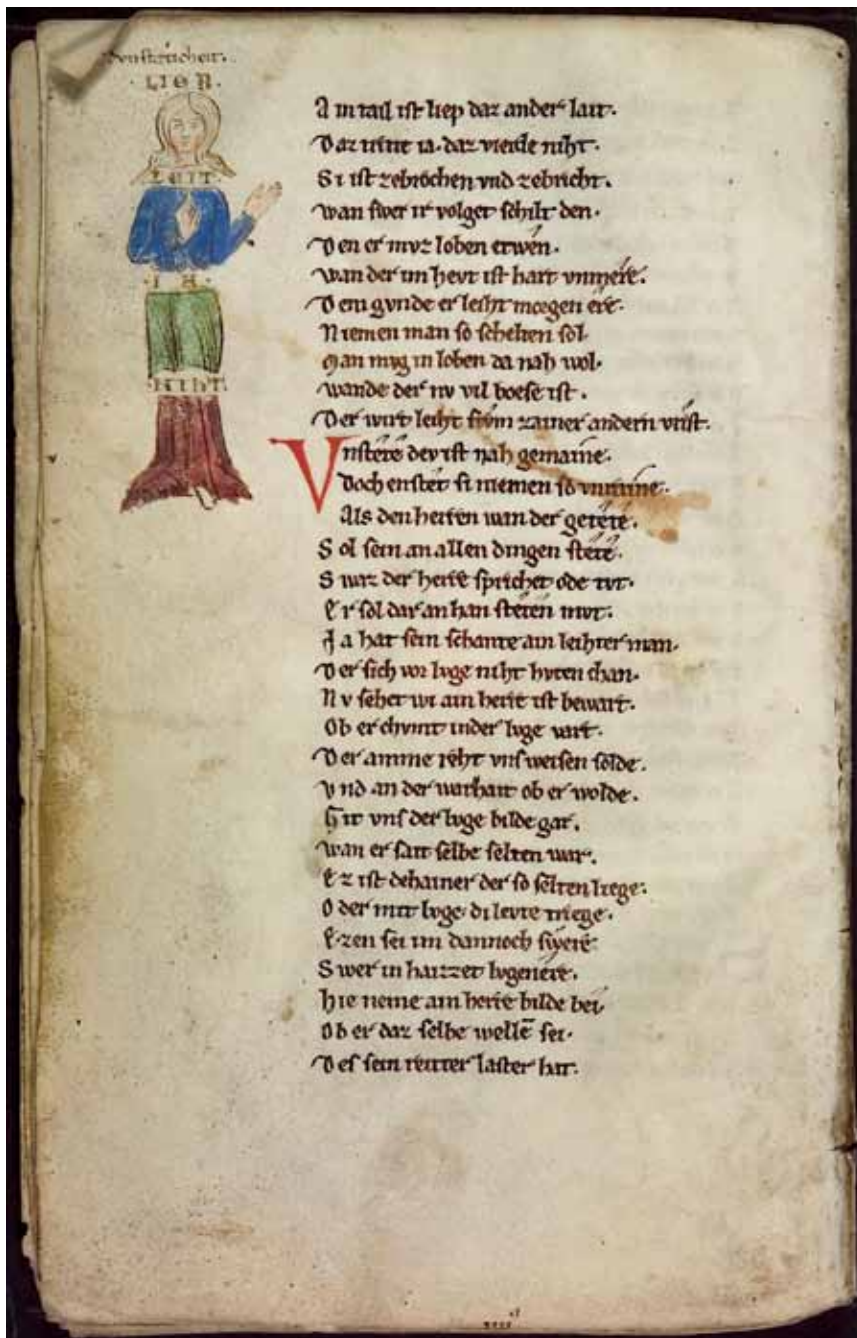 LIEP.
LEIT.
IA.
NIHT.
Ain tail ist liep daz ander lait.
Daz ia. daz vierde niht.
Si ist zebrochen vnd zebricht.
wan swer ir volget schilt den.
Den er mvz loben etwen.
wan der im hevt ist hart vnmere.
Dem gvnde er leiht morgen ere.
Niemen man so schelten sol.
Man mvg in loben da nah wol.
wande der nv vil boese ist.
Der wirt leiht frvm zainer andern vrist.
Vnstete dev ist nah gemaine.
Doch enstet si niemen so vnraine.
Als den herren wan der
Sol sein an allen dingen stete.
Swaz der herre sprichet ode tvt.
Er sol dar an han steten mvt.
Ja hat sein schante ain leihter man.
Der sich vor lvge niht hvten chan.
Nv sehet wi ain herre ist bewart.
Ob er chvmt in der lvge vart.
Der reht vns weisen solde.
vnd an der warhait ob er wolde.
Git vns der lvge bilde gar.
wan er sait selbe selten war.
Ez ist dehainer der so selten liege.
Oder mit lvge di levte triege.
Ezen sei im dannoch swere
Swer in haizzet lvgenere.
Hie neme ain herre bilde bei.
Ob er daz selbe welle sei.
Des sein ritter laster hat.